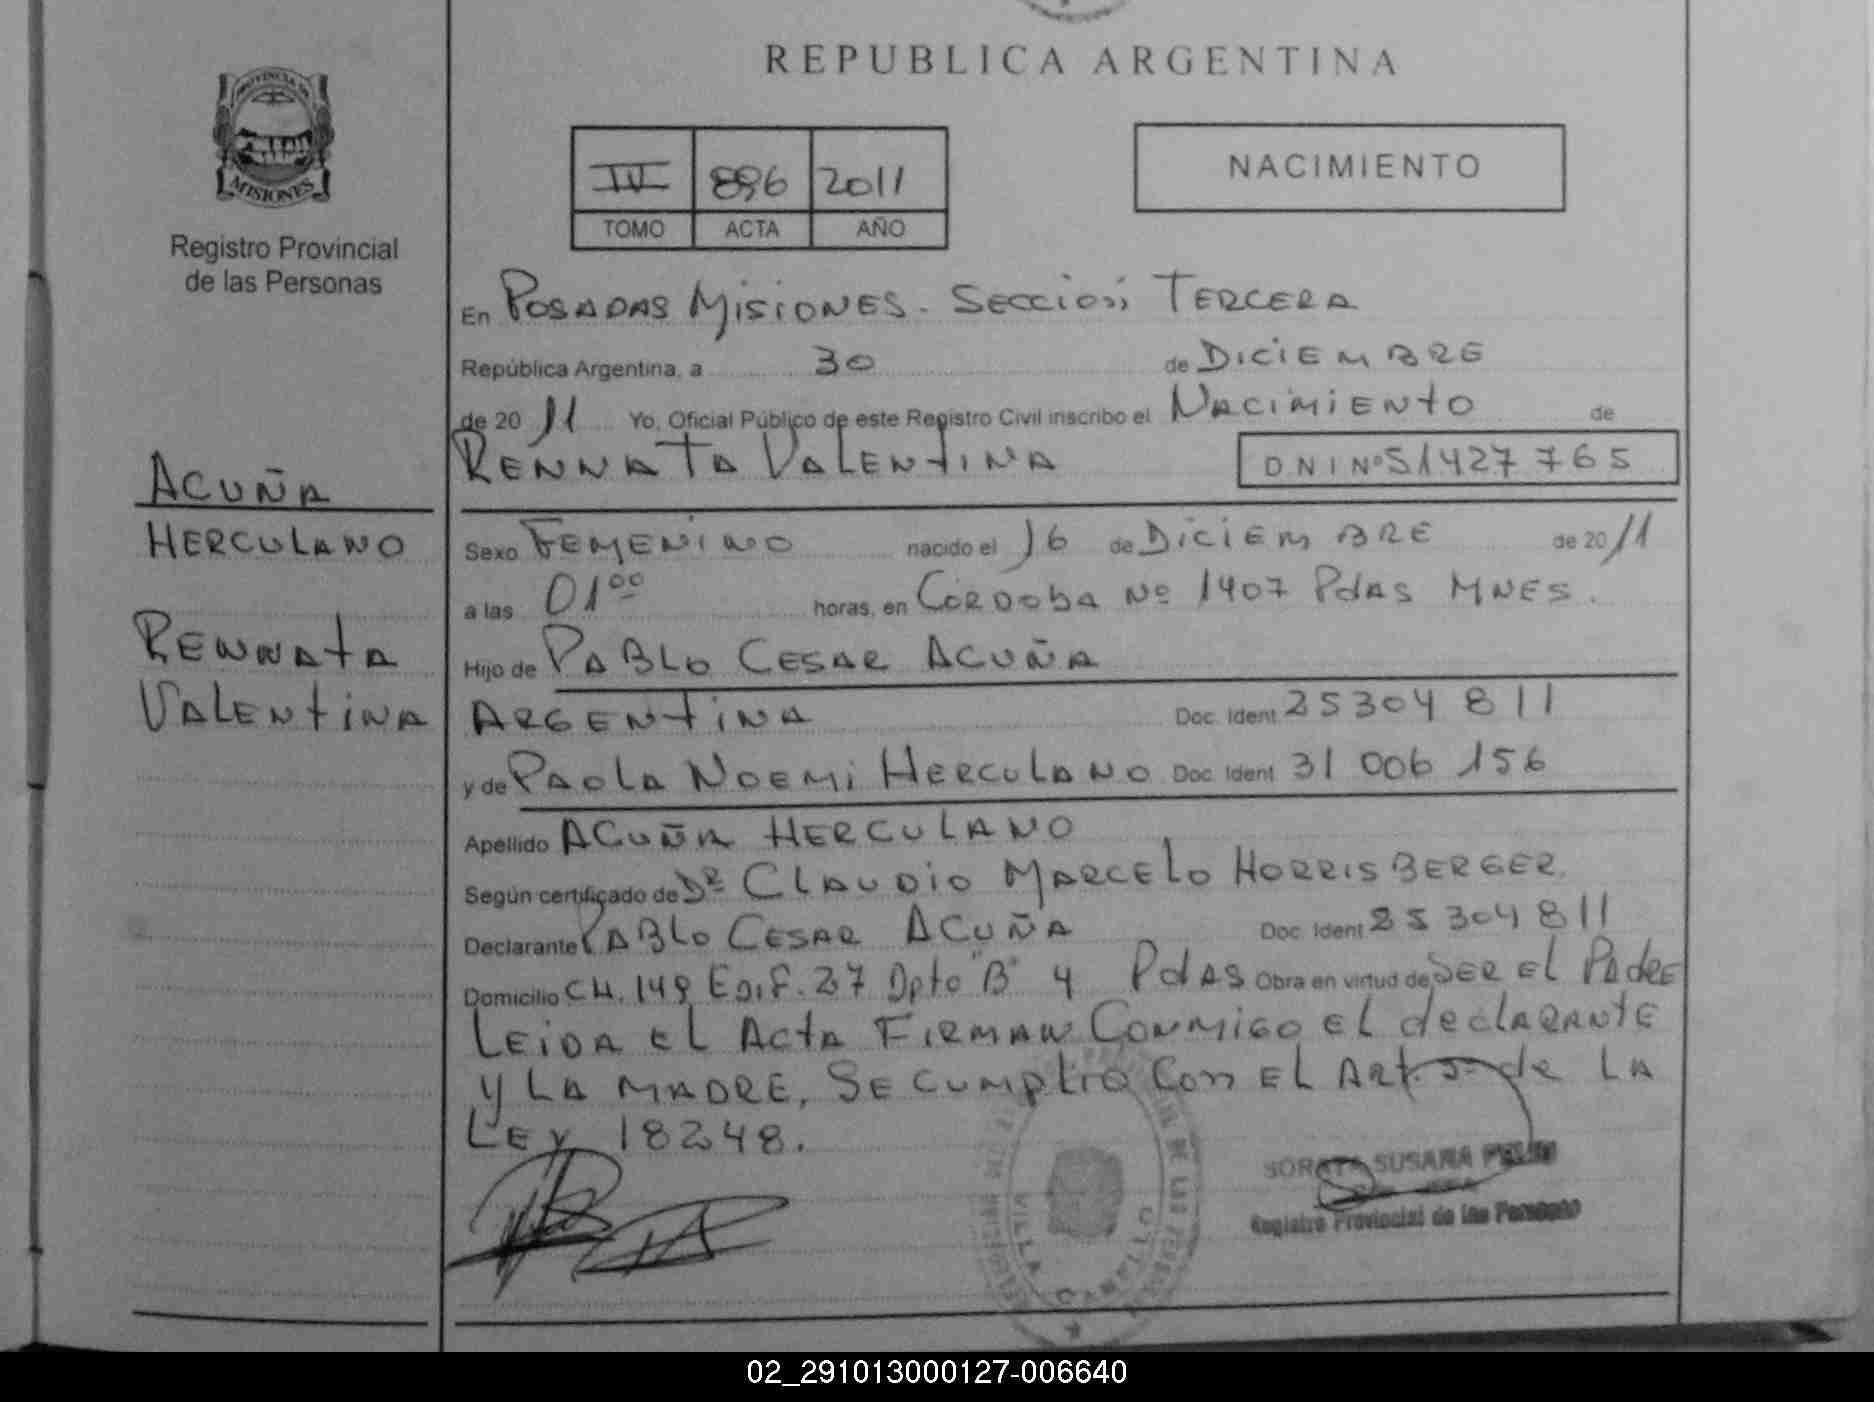 REPUBLICA ARGENTINA
PROVINCIA DE
MISIONES
Registro Provincial
de las Personas
IV 896 2011
TOMO ACTA AÑO
NACIMIENTO
En POSADAS MISIONES. SECCION TERCERA
República Argentina, a 30 de DICIEMBRE
de 20 11 Yo, Oficial Público de este Registro Civil inscribo el NACIMIENTO de
RENNATA VALENTINA DNI Nº 51427765
ACUÑA
HERCULANO
RENNATA
VALENTINA
Sexo FEMENINO nacido el 16 de DICIEMBRE de 20 11
a las 01 00 horas, en CORDOBA Nº 1407 PdAS MNES.
Hijo de PABLO CESAR ACUÑA
ARGENTINA Doc. Ident 25304811
y de PAOLA NOEMI HERCULANO Doc. Ident 31 006 156
Apellido ACUÑA HERCULANO
Según certificado de Dr CLAUDIO MARCELO HORRISBERGER.
Declarante PABLO CESAR ACUÑA Doc. Ident 25304811
Domicilio CH. 149 EDIF. 27 Dpto "B" 4 PdAS Obra en virtud de SER El PAdRE
LEIDA EL ACTA FIRMAN CONMIGO EL declARANTE
y LA MADRE, SE CUMPLIO CON EL ART. 5 de LA
LEY 18248.
SUSANA
Registro Provincial de las Personas
VILLA
02_291013000127-006640